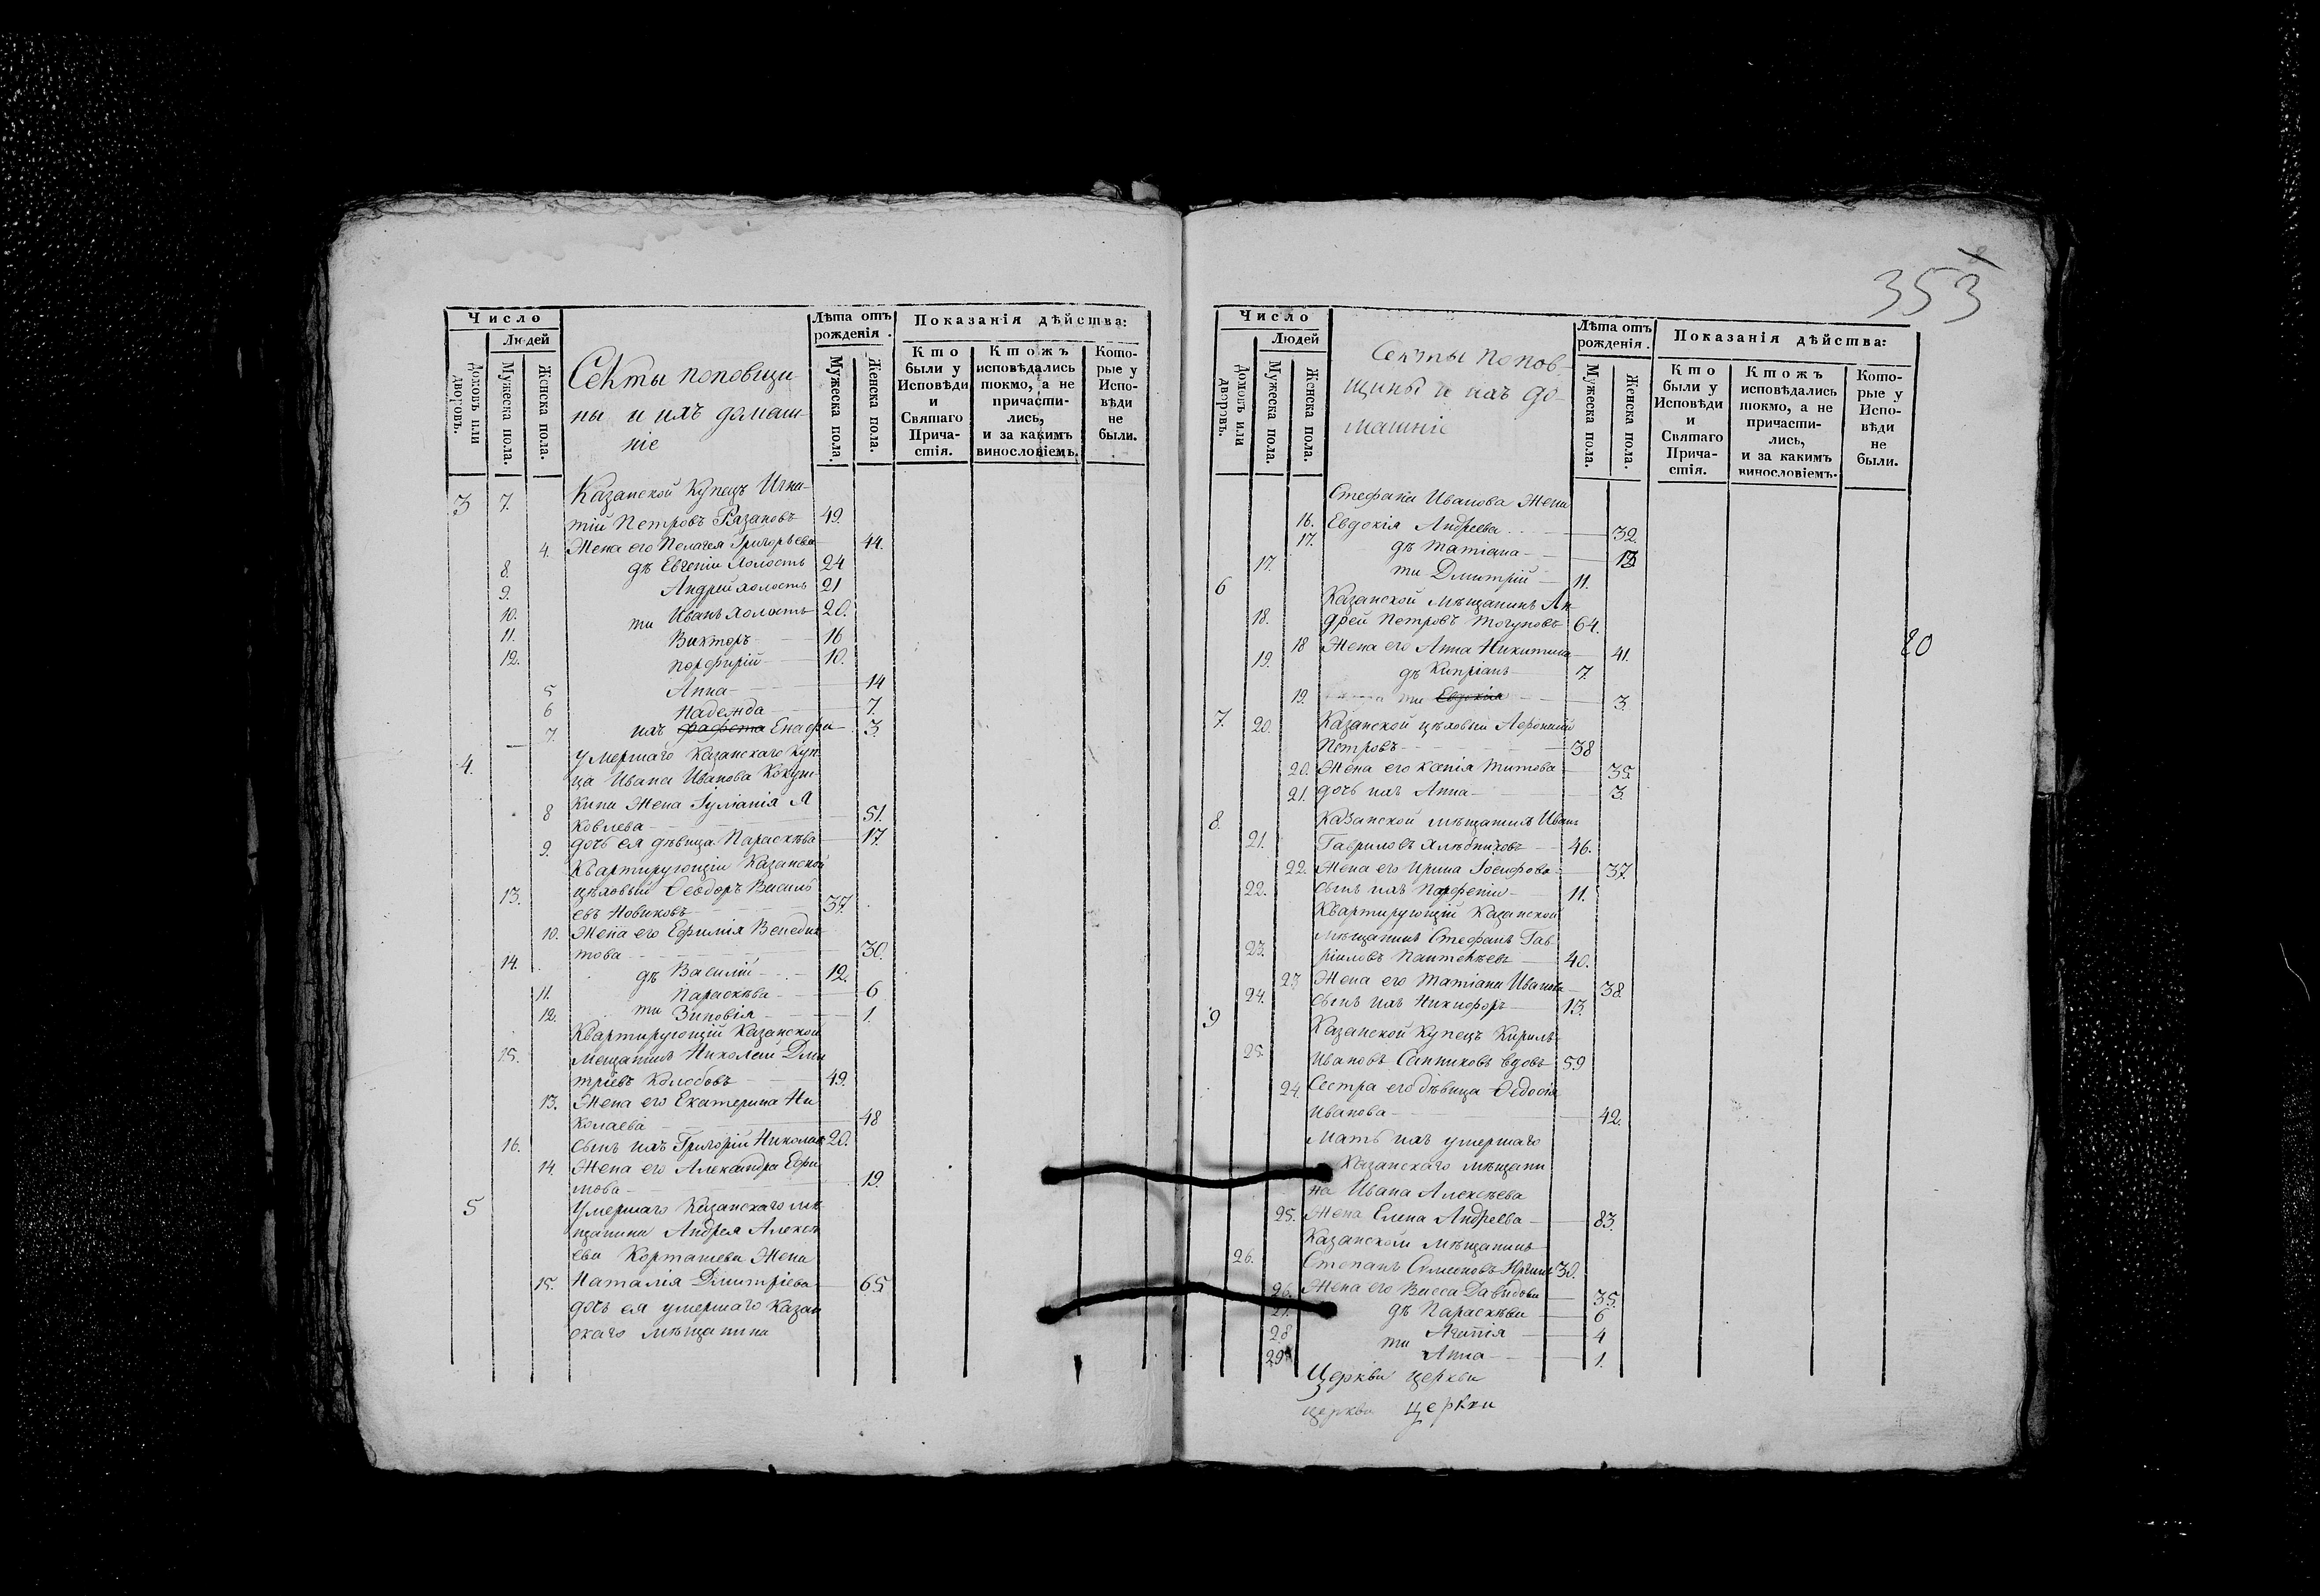 353
Число
Людей
Домовъ или дворовъ.
Мужеска пола.
Женска пола.
Секты поповщи-
ны и ихъ домаш-
ніе
Лѣта отъ
рожденія.
Мужеска пола.
Женска пола.
Показанія дѣйства:
Кто
были у
Исповѣди
и
Святаго
Прича-
стія.
Ктожъ
исповѣдались
токмо, а не
причасти-
лись,
и за какимъ
винословіемъ.
Кото-
рые у
Испо-
вѣди
не
были.
3 7. Казанской Купецъ Игна-
тій Петровъ Рязановъ 49.
4. Жена его Пелагея Григорьева 44.
8. дѣ Евгеній холостъ 24
9. Андрей холостъ 21
10. ти Иванъ холостъ 20.
11. Викторъ 16
12. Порфирій 10.
5 Анна 14
6 Надежда 7.
7. ихъ 3.
4. Умершаго Казанскаго Куп
ца Ивана Ивана
8 Жена Іуліанія Я
ковлева 51.
9. дочь ея дѣвица Параскѣва 17.
Квартирующій Казанской
13. цѣховый Ѳеодоръ Василь
евъ Новиковъ 37.
10. Жена его Ефимія Венедик
това 30.
14. дѣ Василій 12.
11. Параскѣва 6
12. ти Зиновія 1.
Квартирующій Казанской
15. Мещанинъ Николай Дми
тріевъ Колобовъ 49.
13. Жена его Екатерина Ни
колаева 48
16. Сынъ ихъ Григорій 20.
14. Жена его Александра Ефи
мова 19.
5 Умершаго Казанскаго мѣ
щанина Андрея Алексѣ
ева Корташева Жена
15. Наталія Дмитріева 65.
дочь ея умершаго Казан
скаго мѣщанина
Число
Людей
Домовъ или дворовъ.
Мужеска пола.
Женска пола.
Секты попов-
щины и ихъ до-
машніе
Лѣта отъ
рожденія.
Мужеска пола.
Женска пола.
Показанія дѣйства:
Кто
были у
Исповѣди
и
Святаго
Прича-
стія.
Ктожъ
исповѣдались
токмо, а не
причасти-
лись,
и за какимъ
винословіемъ.
Кото-
рые у
Испо-
вѣди
не
были.
Стефана Иванова Жена
16. Евдокія Андреева 32.
17. дѣ Татіана
17. ти Дмитрій 11.
6 Казанской мѣщанинъ Ан
18. дрей Петровъ 64.
18 Жена его Анна Никитина 41.
19. дѣ Кипріанъ 7.
19. ти Евдокія 3.
7. 20. Казанской цѣховый
Петровъ 38
20. Жена его Титова 35.
21. дочь ихъ Анна 3.
8. Казанской мѣщанинъ Иванъ
21. Гавриловъ Хлѣбниковъ 46.
22. Жена его Ирина Іосифова 37.
22. Сынъ ихъ Парфеній 11.
Квартирующій Казанской
23. Мѣщанинъ Стефанъ Гав
ріиловъ 40.
23 Жена его Татіана Иванова 38.
24. Сынъ ихъ Никифоръ 13.
9 Казанской Купецъ Кирилъ
25. Ивановъ Санниковъ вдовъ 59
24. Сестра его дѣвица Ѳедосія
Иванова 42.
Мать ихъ умершаго
Казанскаго мѣщани
на Ивана Алексѣева
25. Жена Елена Андреева 83.
Казанской Мѣщанинъ
26. Степанъ Симеоновъ
26. Жена его Васса Давидова 35.
27. дѣ Параскѣва 6
28 ти Агапія 4
29 Анна 1.
20
Церкви церкви
церкви церкви